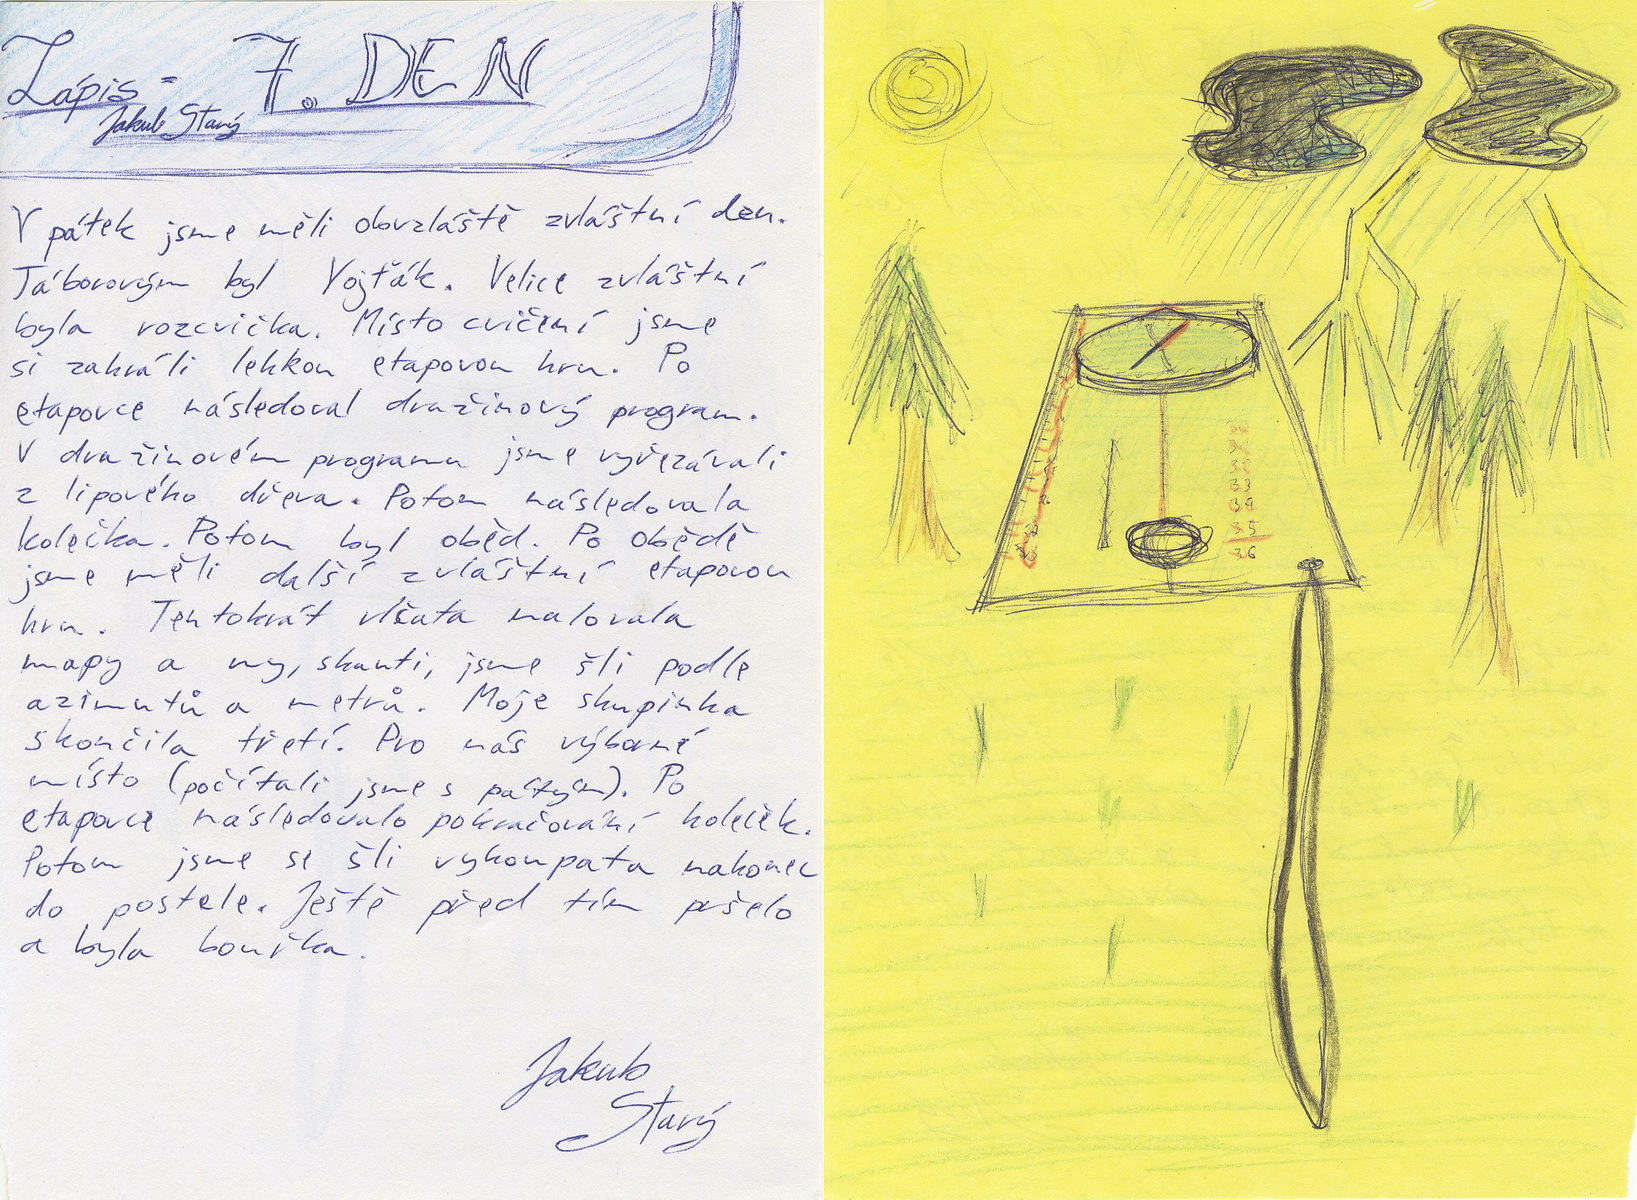 Zápis - 7. DEN
Jakub Starý
V pátek jsme měli obvzláště zvláštní den.
Táborovým byl Vojťák. Velice zvláštní
byla rozcvička. Místo cvičení jsme
si zahráli lehkou etapovou hru. Po
etapovce následoval družinový program.
V družinovém programu jsme vyřezávali
z lipového dřeva. Potom následovala
kolečka. Potom byl oběd. Po obědě
jsme měli další zvláštní etapovou
hru. Tentokrát vlčata malovala
mapy a my, skauti, jsme šli podle
azimutů a metrů. Moje skupinka
skončila třetí. Pro nás výborné
místo (počítali jsme s pátým). Po
etapovce následovalo pokračování koleček.
Potom jsme se šli vykoupat a nakonec
do postele. Ještě před tím pršelo
a byla bouřka.
Jakub
Starý
33
34
35
36